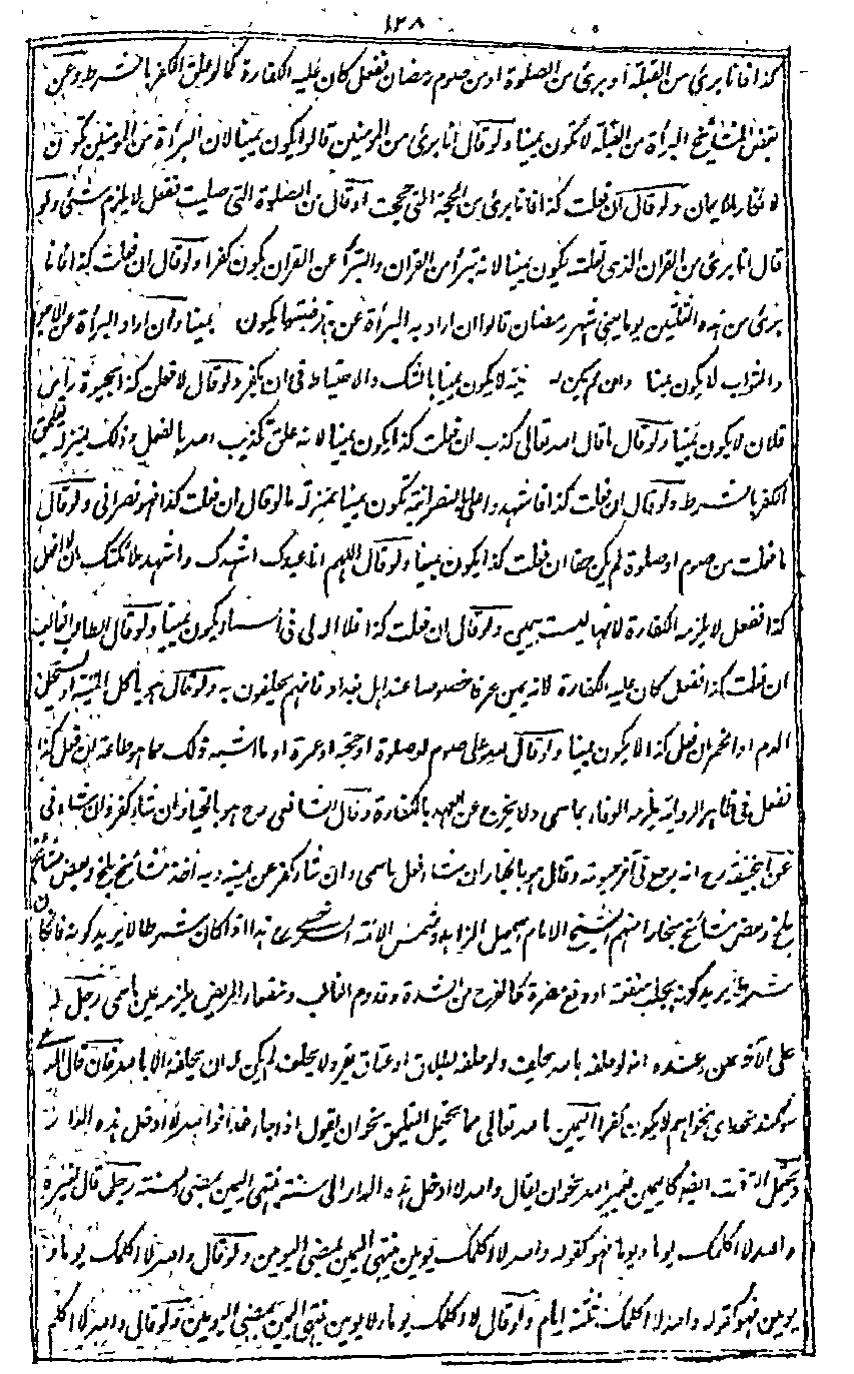 ١٢٨
كذا فانا برئ من القبلة او برئ من الصلوة او من صوم رمضان ففعل كان عليه الكفارة كما لو علق الكفر بالشرط وعن
بعض المشايخ البرأة من القبلة لا يكون يمينا ولو قال انا برئ من المومنين قالوا يكون يمينا لان البرأة من المومنين تكون
لانكار الايمان ولو قال ان فعلت كذا فانا برئ من الحجة التى حججت او قال من الصلوة التى صليت ففعل لا يلزمه شئ ولو
قال انا برئ من القران الذى تعلمته يكون يمينا لانه تبرأ من القران والتبرأ عن القران يكون كفرا ولو قال ان فعلت كذا فانا
برئ من هذه الثلثين يوما يعنى شهر رمضان قالوا ان اراد به البرأة عن فرضيتها يكون يمينا وان اراد البرأة عن الاجر
والثواب لا يكون يمينا وان لم يكن له نية لا يكون يمينا بالشك والاحتياط فى ان يكفر ولو قال لافعلن كذا بحيوة رأس
فلان لا يكون يمينا ولو قال ما قال الله تعالى كذب ان فعلت كذا يكون يمينا لانه علق تكذيب الله بالفعل وذلك بمنزلة تعليق
الكفر بالشرط ولو قال ان فعلت كذا فاشهدوا على بالنصرانية يكون يمينا بمنزلة ما لو قال ان فعلت كذا فهو نصرانى ولو قال
ما فعلت من صوم او صلوة لم يكن حقا ان فعلت كذا يكون يمينا ولو قال اللهم انا عبدك اشهدك واشهد ملائكتك ان لا افعل
كذا ففعل لا يلزمه الكفارة لانها ليست بيمين ولو قال ان فعلت كذا فلا اله لى فى السماء يكون يمينا ولو قال الطالب الغالب
ان فعلت كذا ففعل كان عليه الكفارة لانه يمين عرفا خصوصا عند اهل بغداد فانهم يحلفون به ولو قال هو ياكل الميتة او يستحل
الدم او الخمر ان فعل كذا لا يكون يمينا ولو قال لله على صوم او صلوة او حجة او عمرة او ما اشبه ذلك مما هو طاعة ان فعل كذا
ففعل فى ظاهر الرواية يلزمه الوفاء بما سمى ولا يخرج عن العهدة بالكفارة وقال الشافعى رح هو بالخيار ان شاء كفر وان شاء وفى
عن ابيحنيفة رح انه رجع فى آخر حيوته وقال هو بالخيار ان شاء فعل ما سمى وان شاء كفر عن يمينه وبه أخذ مشائخ بلخ وبعض مشائخ
بلخ وبعض مشائخ بخارا منهم الشيخ الامام اسمعيل الزاهد وشمس الائمة السرخسى رح هذا اذا كان شرطا لا يريد كونه فان كان
شرطا يريد كونه بجلب منفعة او دفع مضرة كالفرج من الشدة وقدوم الغائب وشفاء المريض يلزمه عين ما سمى رجل له
على الآخر يمين وعنده انه لو حلفه بالله يحلف ولو حلفه بطلاق او عتاق يقر ولا يحلف لم يكن له ان يحلفه الا بالله فان قال
سوكند خداى بخواهم لا يكون كفرا اليمين بالله تعالى مما يحتمل التعليق نحو ان يقول اذا جاء غد فو الله لا ادخل هذه الدار
ويحتمل التوقيت ايضا كاليمين بغير الله نحو ان يقال والله لا ادخل هذه الدار الى سنة ينتهى اليمين بمضى السنة رجل قال لغيره
والله لا اكلمك يوما ويوما فهو كقوله والله لا اكلمك يومين ينتهى اليمين بمضى اليومين ولو قال والله لا اكلمك يوما و
يومين فهو كقوله والله لا اكلمك ثلثة ايام ولو قال لا اكلمك يوما ولا يومين ينتهى اليمين بمضى اليومين ولو قال والله لا اكلم